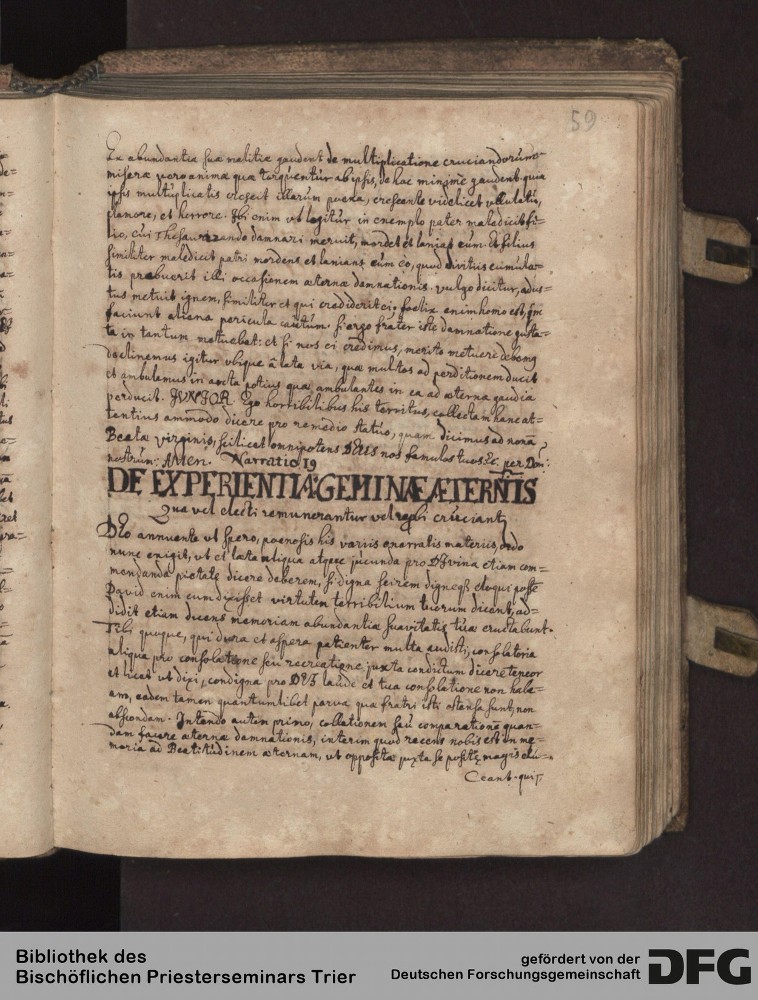 59
Ex abundantia suæ malitiæ gaudent de multiplicatione cruciandorum
miseræ vero animæ quæ torquentur ab ipsis, de hac minime gaudent quia
ipsis multiplicatis crescit illarum poena, crescente videlicet ululatu,
clamore, et horrore. Ibi enim ut legitur in exemplo pater maledicit fi-
lio, cui Thesaurizando damnari meruit, mordet et laniat eum. Et filius
similiter maledicit patri mordens et lanians eum eo, quod divitiis cumula-
tis præbuerit illi occasionem æternæ damnationis. vulgo dicitur, adus-
tus metuit ignem, similiter et qui crediderit ei, foelix enim homo est, qm
faciunt aliena pericula cautum. Si ergo frater iste damnatione gusta-
ta in tantum metuebat: et si nos ei credimus, merito metuere debemq
declinemus igitur ubique â lata via, quæ multos ad perditionem ducit
et ambulemus in arcta potius quæ ambulantes in ea ad æterna gaudia
perducit. JUNIOR. Ego horribilibus his territus, collectam hanc at-
tentius ammodo dicere pro remedio statuo, quam dicimus ad nonã
Beatæ virginis, scilicet omnipotens DEUS nos famulos tuos &c. per Dom:
nostrum: AMEN. Narratio 19
DE EXPERIENTIA GEMINÆ ÆTERNITIS
Qua vel electi remunerantur vel reprobi cruciantr
DEo annuente ut spero, poenosis his variis enarratis materiis, ordo
nunc exigit, ut et læta aliqua atque jucunda pro Divina etiam com-
mendanda pietate dicere deberem, si digna scirem digneqȝ eloqui posse
David enim cum dixisset virtutem terribilium tuorum dicent, ad-
didit etiam dicens memoriam abundantiæ suavitatis tuæ eructabunt.
Tibi quoque, qui dura et aspera patienter multa audisti, consolatoria
aliqua pro consolatione seu recreatione juxta condictum dicere teneor
et licet ut dixi, condigna pro DEI laude et tua consolatione non habe-
am, eadem tamen quantumlibet parva quæ fratri isti ostensa sunt, non
abscondam. Intendo autem primo, collationem seu comparatione quan-
dam facere æternæ damnationis, interim quod recens nobis est in me-
moria ad Beatitudinem æternam, ut opposita juxta se posita magis elu-
Ceant. qui
Bibliothek des
Bischöflichen Priesterseminars Trier
gefördert von der
Deutschen Forschungsgemeinschaft
DFG